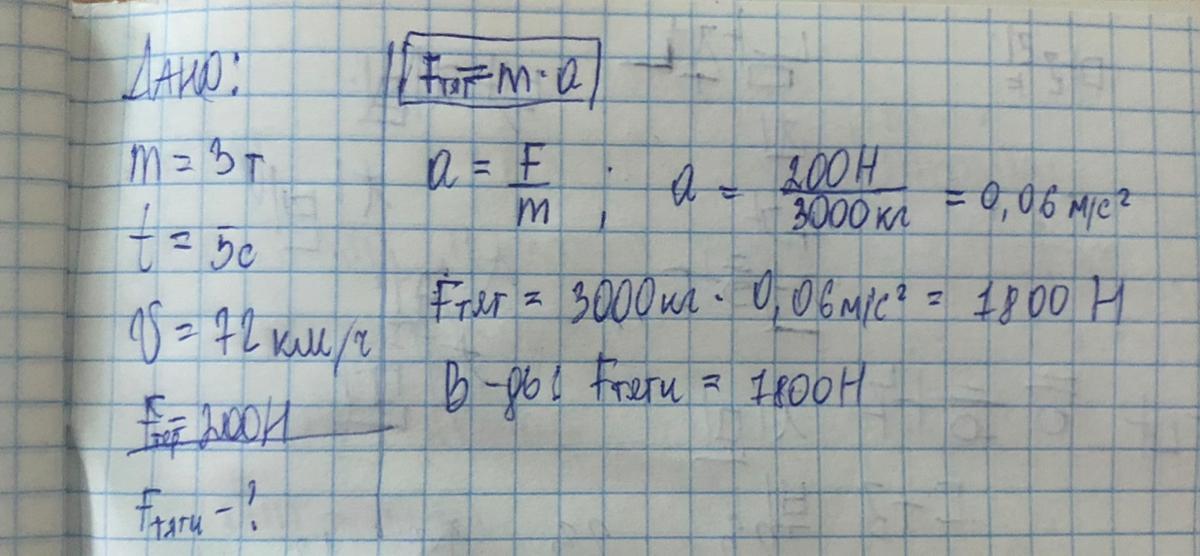 Дано:
m = 3т
t = 5с
V = 72 км/ч
Fтер = 200Н
Fтяги - ?
Fтяг = m · a
a = F/m ; a = 200Н/3000кг = 0,06 м/с²
Fтяг = 3000кг · 0,06 м/с² = 1800 Н
В-дь: Fтяги = 1800Н